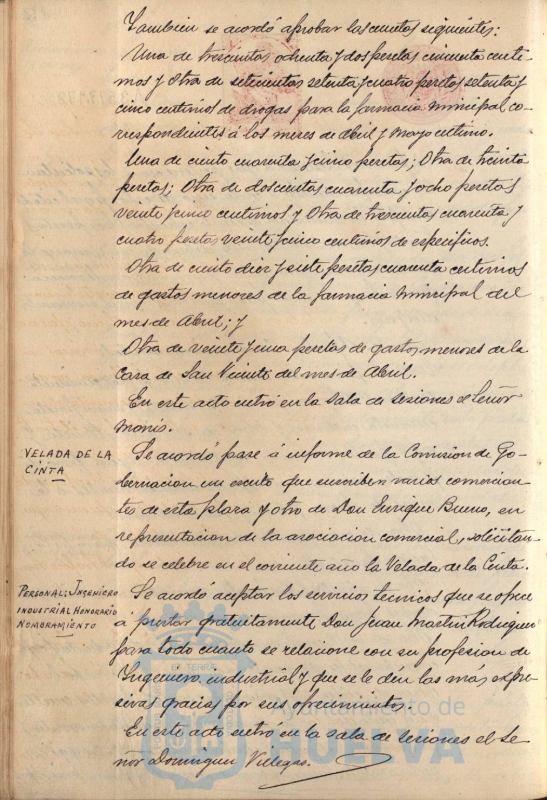 Tambien se acordó aprobar las cuentas siguientes:
Una de trescientas ochenta y dos pesetas cincuenta centi-
mos y otra de setecientas setenta y cuatro pesetas setenta y
cinco centimos de drogas para la farmacia municipal co-
rrespondientes á los meses de Abril y Mayo ultimo.
Una de ciento cuarenta y cinco pesetas; Otra de treinta
pesetas; Otra de doscientas cuarenta y ocho pesetas
veinte y cinco centimos y Otra de trescientas cuarenta y
cuatro pesetas veinte y cinco centimos de especificos.
Otra de ciento diez y siete pesetas cuarenta centimos
de gastos menores de la farmacia municipal del
mes de Abril; y
Otra de veinte y una pesetas de gastos menores de la
Casa de San Vicente del mes de Abril.
En este acto entró en la sala de sesiones el Señor
Monis.
VELADA DE LA
CINTA
Se acordó pase á informe de la Comision de Go-
bernacion un escrito que suscriben varios comercian-
tes de esta plaza y otro de Don Enrique Bueno, en
representacion de la asociacion comercial, solicitan-
do se celebre en el corriente año la Velada de la Cinta.
PERSONAL: INGENIERO
INDUSTRIAL HONORARIO
NOMBRAMIENTO
Se acordó aceptar los servicios tecnicos que se ofrece
á prestar gratuitamente Don Juan Martin Rodriguez
para todo cuanto se relacione con su profesion de
Ingeniero industrial y que se le dén las más expre-
sivas gracias por sus ofrecimientos.
En este acto entró en la sala de sesiones el Se-
ñor Dominguez Villegas.
Ayuntamiento de
HUELVA